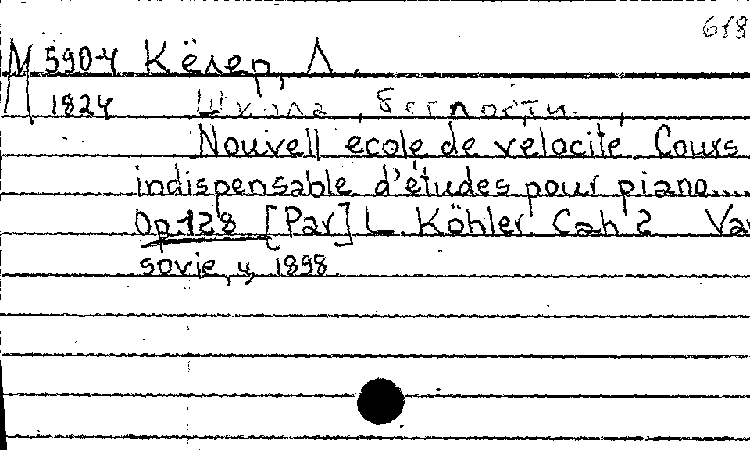 618
М 590-4 Кёлер, Л.
1824 Школа беглости.
Nouvell ecole de velocite. Cours
indispensable d'études pour piano....
Op.128 [Par] L. Köhler Cah 2 Var
sovie, ц, 1898.